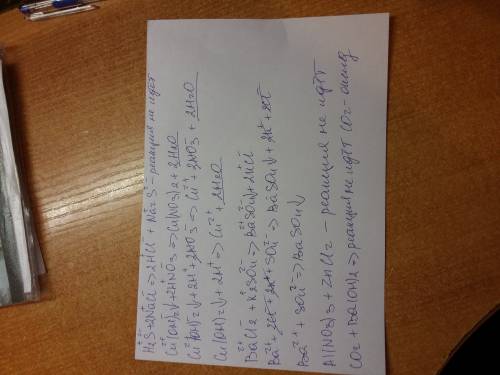 H2S+2NaCl => 2HCl + Na2S – реакция не идёт
Cu(OH)2↓+2HNO3 => Cu(NO3)2+2H2O
Cu(OH)2↓+2H⁺+2NO3⁻ => Cu²⁺+2NO3⁻+2H2O
Cu(OH)2↓+2H⁺ => Cu²⁺+2H2O
BaCl2 + K2SO4 => BaSO4↓+2KCl
Ba²⁺+2Cl⁻+2K⁺+SO4²⁻ => BaSO4↓+2K⁺+2Cl⁻
Ba²⁺+SO4²⁻ => BaSO4↓
Al(NO3)3+ZnCl2 – реакция не идёт
CO2+Ba(OH)2 => реакция не идёт CO2-оксид